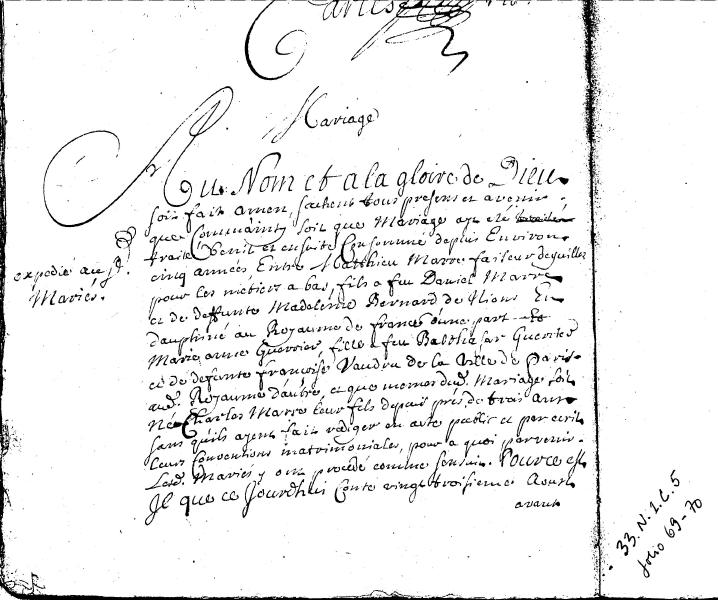 Mariage
Au Nom et a la gloire de Dieu
soit fait amen, sachent tous presens et avenir
que Comme ainsy soit que Mariage aye eté
traité Benit et ensuite Consommé depuis Environ
cinq années Entre Matthieu Marre faiseur deguilles
pour les métiers a bas, fils a feu Daniel Marre
et de deffunte Madeleine Bernard de Nions En
dauphiné au Royaume de france d'une part
Marie anne Guersier, fille a feu Balthasar Guersier
et de defunte françoise Vaudru de la Ville de Paris
aud. Royaume d'autre, et que memes dud. Mariage soit
Né Charles Marre leur fils depuis prés de trois ans
sans quils ayent fait rediger en acte public et par ecrit
leurs Conventions matrimoniales, pour a quoi parvenir
Lesd. Mariés y ont procédé comme sensuit. Pource est
Il que ce Jourdhui Conté vingt troisieme Aoust
avant
expedié au sd.
Mariés.
33.N.I.C.5
folio 69-70